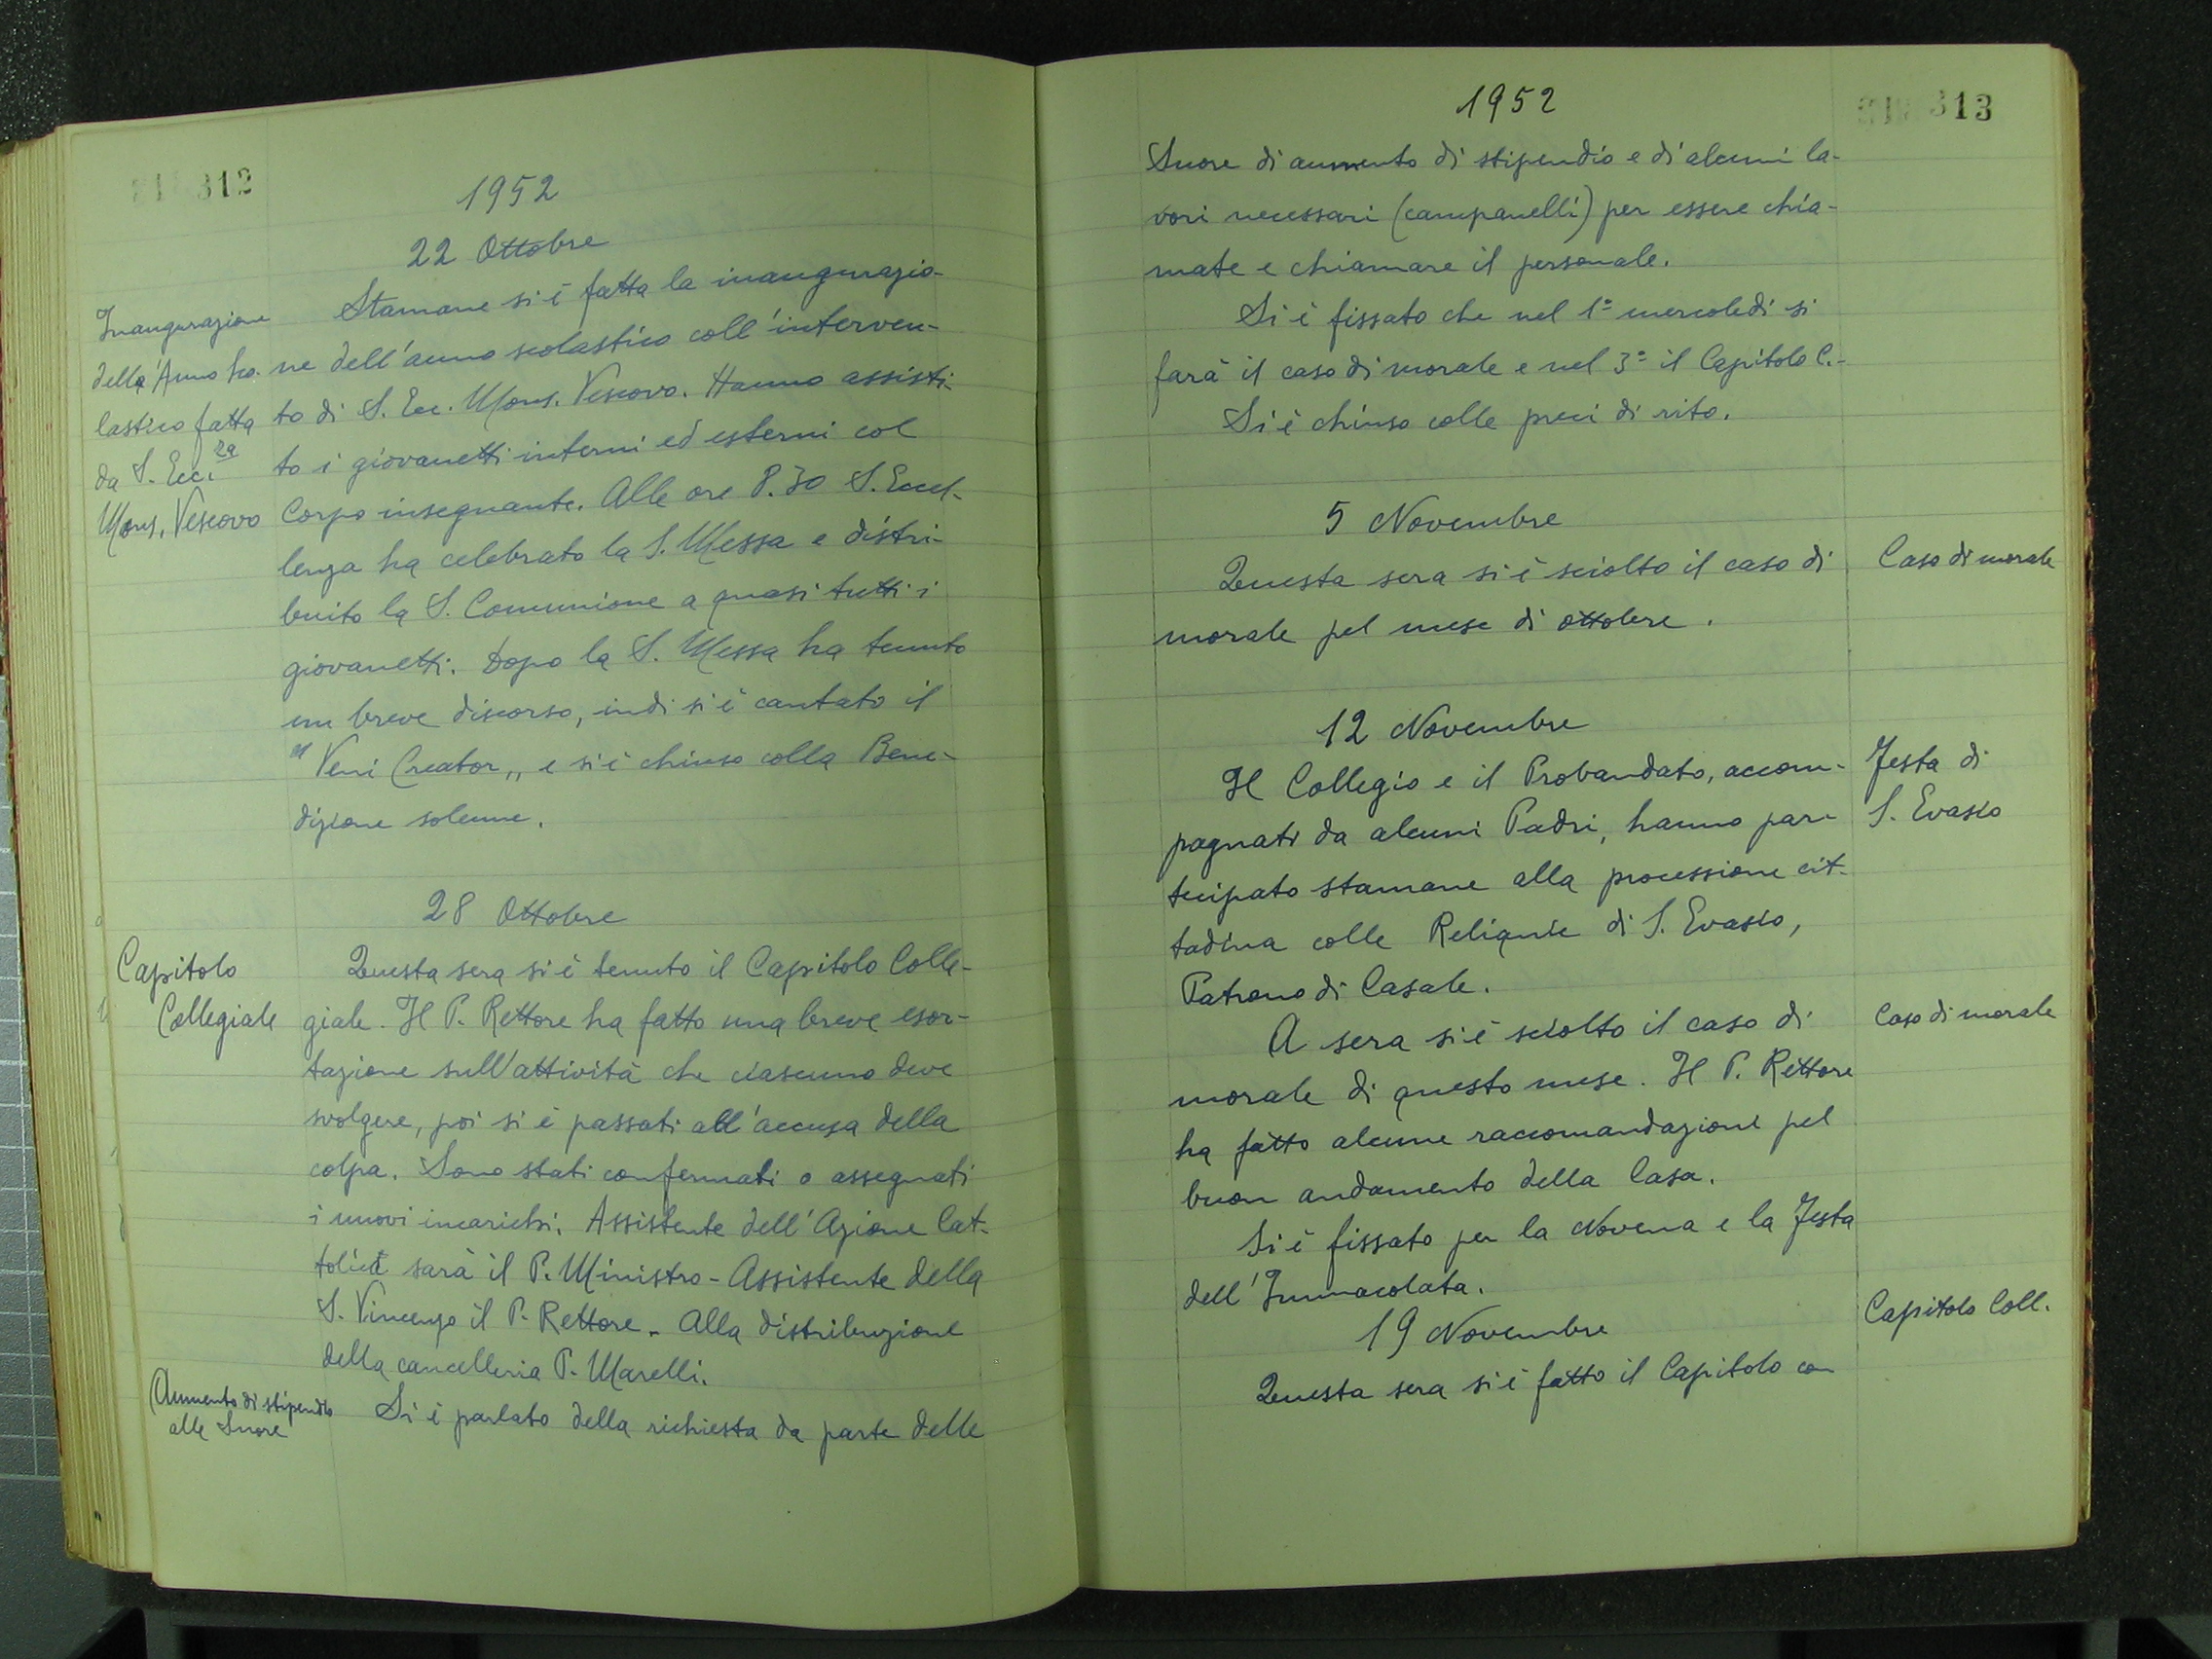 312
1952
22 Ottobre
Inaugurazione
della Anno sco-
lastico fatta
da S. Ecc.za
Mons. Vescovo
Stamane si è fatta la inaugurazio-
ne dell'anno scolastico coll'interven-
to di S. Ecc. Mons. Vescovo. Hanno assisti-
to i giovanetti interni ed esterni col
Corpo insegnante. Alle ore 8.30 S. Eccel-
lenza ha celebrato la S. Messa e distri-
buito la S. Comunione a quasi tutti i
giovanetti. Dopo la S. Messa ha tenuto
un breve discorso, indi si è cantato il
"Veni Creator„ e si è chiuso colla Bene-
dizione solenne.
28 Ottobre
Capitolo
Collegiale
Questa sera si è tenuto il Capitolo Colle-
giale. Il P. Rettore ha fatto una breve esor-
tazione sull'attività che ciascuno deve
svolgere, poi si è passati all'accusa della
colpa. Sono stati confermati o assegnati
i nuovi incarichi: Assistente dell'Azione Cat-
tolica sarà il P. Ministro - Assistente della
S. Vincenzo il P. Rettore - Alla distribuzione
della cancelleria P. Marelli.
Aumento di stipendio
alle Suore
Si è parlato della richiesta da parte delle
313
1952
Suore di aumento di stipendio e di alcuni la-
vori necessari (campanelli) per essere chia-
mate e chiamare il personale.
Si è fissato che nel 1º mercoledì si
farà il caso di morale e nel 3º il Capitolo C.-
Si è chiuso colle preci di rito.
5 Novembre
Questa sera si è sciolto il caso di
morale pel mese di ottobre.
Caso di morale
12 Novembre
Il Collegio e il Probandato, accom-
pagnati da alcuni Padri, hanno par-
tecipato stamane alla processione cit-
tadina colle Reliquie di S. Evasio,
Patrono di Casale.
Festa di
S. Evasio
A sera si è sciolto il caso di
morale di questo mese. Il P. Rettore
ha fatto alcune raccomandazioni pel
buon andamento della Casa.
Caso di morale
Si è fissato per la Novena e la Festa
dell'Immacolata.
19 Novembre
Capitolo Coll.
Questa sera si è fatto il Capitolo con